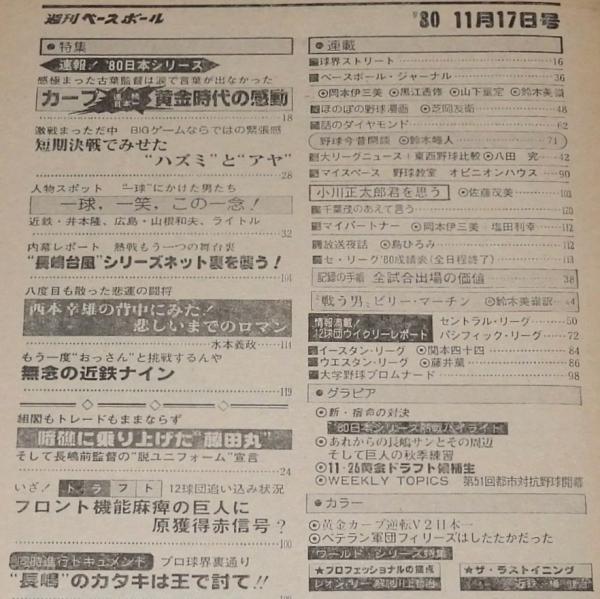 週刊ベースボール
'80 11月17日号
特集
速報！ '80日本シリーズ
感極まった古葉監督は涙で言葉が出なかった
カープ 黄金時代の感動
18
激戦まっただ中 BIGゲームならではの緊張感
短期決戦でみせた
“ハズミ”と“アヤ”
28
人物スポット “一球”にかけた男たち
一球，一笑，この一念！
近鉄・井本隆、広島・山根和夫、ライトル
32
内幕レポート 熱戦もう一つの舞台裏
“長嶋台風”シリーズネット裏を襲う！
104
八度目も散った悲運の闘将
西本幸雄の背中にみた！
悲しいまでのロマン
水本義政 111
もう一度“おっさん”と挑戦するんや
無念の近鉄ナイン
119
組閣もトレードもままならず
暗礁に乗り上げた“藤田丸”
そして長嶋前監督の“脱ユニフォーム”宣言
24
いざ！ ドラフト 12球団追い込み状況
フロント機能麻痺の巨人に
原獲得赤信号？
100
同時進行ドキュメント プロ球界裏通り
“長嶋”のカタキは王で討て!!
連載
球界ストリート 16
ベースボール・ジャーナル 36
⊙岡本伊三美⊙黒江透修⊙山下重定⊙鈴木美嶺
ほのぼの野球漫画 ⊙芝岡友衛 48
話のダイヤモンド 62
野球今昔問談 71
大リーグニュース＋東西野球比較⊙八田 42
マイスペース 野球教室 オピニオンハウス 90
小川正太郎君を思う ⊙佐藤茂美 101
千葉茂のあえて言う 120
マイパートナー ⊙岡本伊三美・塩田利幸 112
放送夜話 ⊙島ひろみ 115
セ・リーグ'80成績表（全日程終了） 113
記録の手帳 全試合出場の価値 38
「戦う男」ビリー・マーチン ⊙鈴木美嶺訳
情報満載！
12球団ウイクリーレポート
セントラル・リーグ 50
パシフィック・リーグ 72
イースタン・リーグ ⊙関本四十四 84
ウエスタン・リーグ ⊙藤井薫 86
大学野球プロムナード 98
グラビア
⊙新・宿命の対決
'80日本シリーズ熱戦ハイライト
⊙あれからの長嶋サンとその周辺
そして巨人の秋季練習
⊙11・26黄金ドラフト候補生
⊙WEEKLY TOPICS 第51回都市対抗野球開幕
カラー
⊙黄金カープ逆転V2日本一
⊙ベテラン軍団フィリーズはしたたかだった
ワールド・シリーズ特集
★プロフェッショナルの盲点
★ザ・ラストイニング